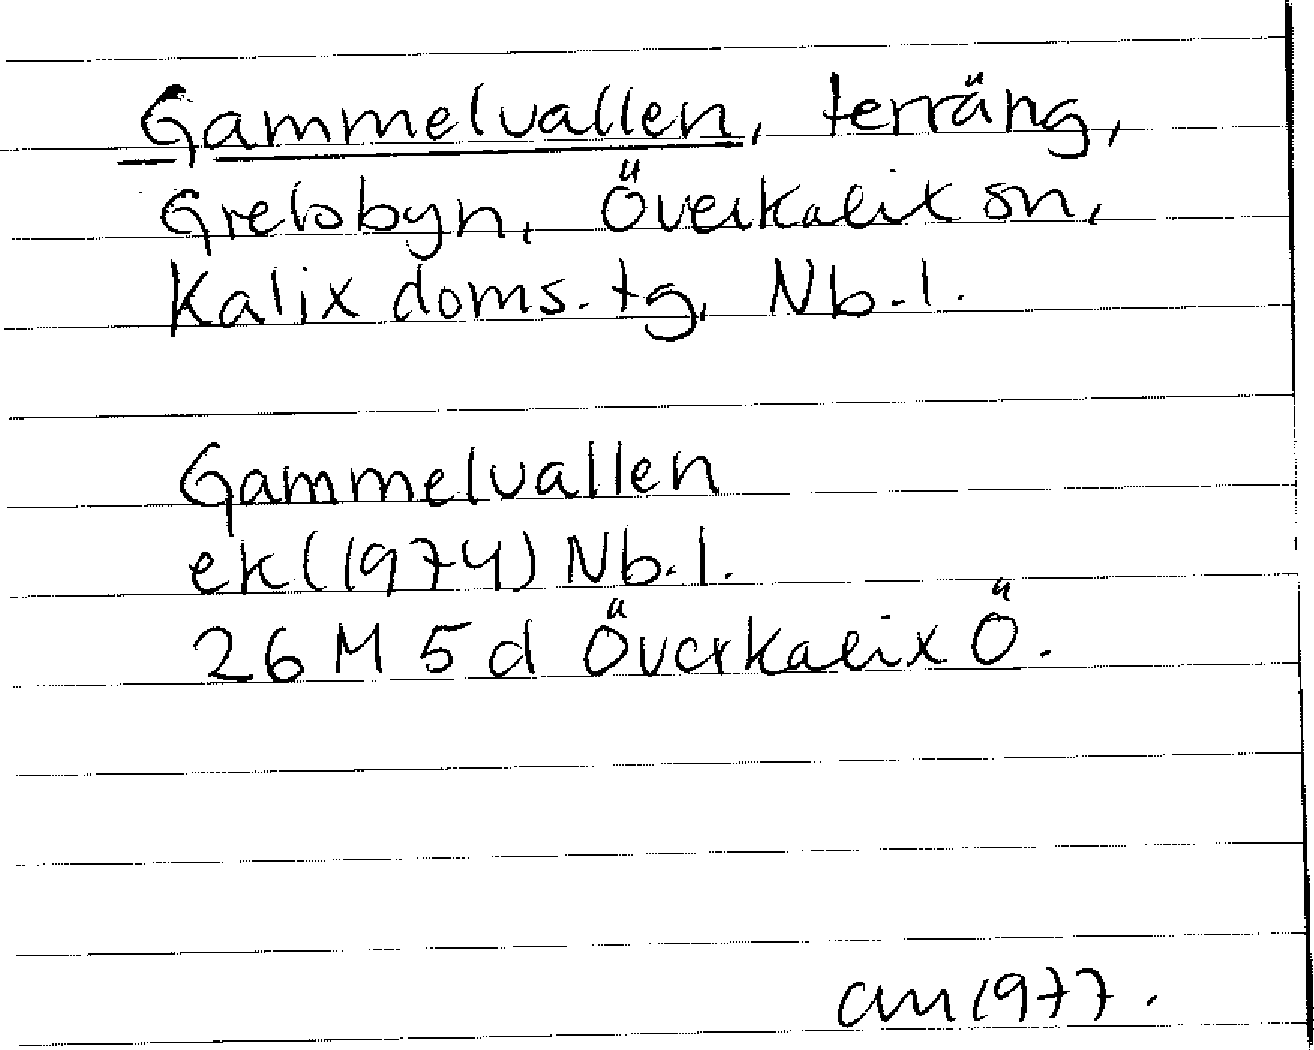 Gammelvallen, terräng,
Grelsbyn, Överkalix sn,
Kalix doms. tg, Nb. l.
Gammelvallen
ek (1974) Nb. l.
26 M 5 d Överkalix Ö.
am 1977.